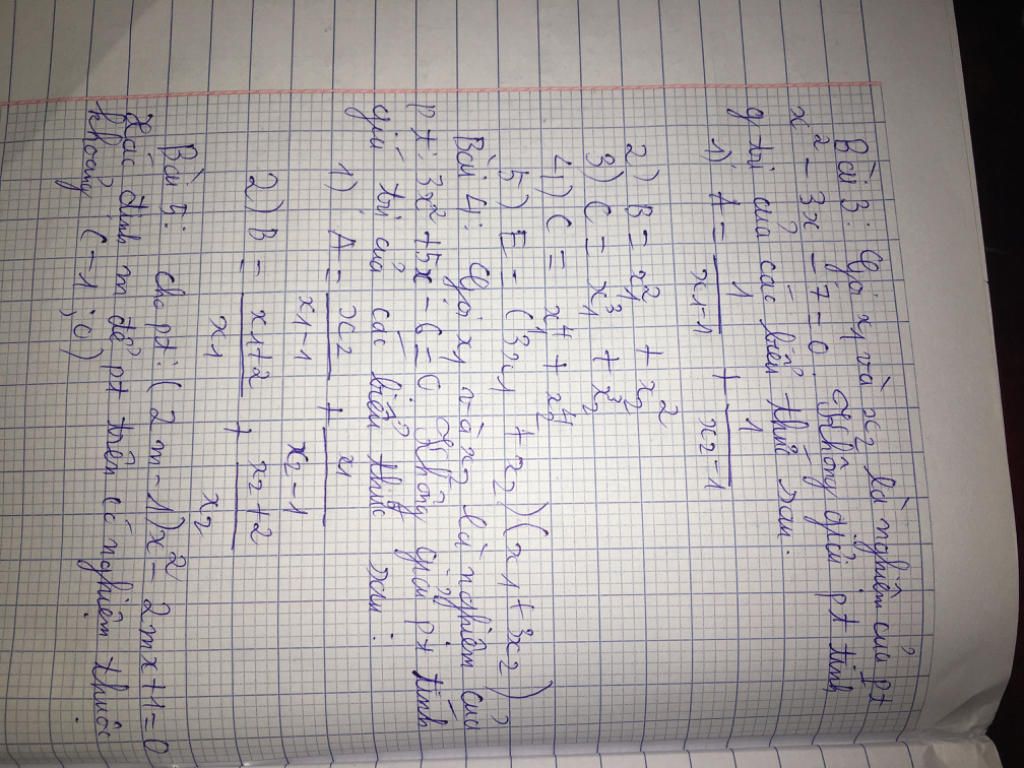 Bài 3: Gọi x₁ và x₂ là nghiệm của pt
x² - 3x - 7 = 0. Không giải pt tính
g trị của các biểu thức sau.
1) A = 1/(x₁-1) + 1/(x₂-1)
2) B = x₁² + x₂²
3) C = x₁³ + x₂³
4) C = x₁⁴ + x₂⁴
5) E = (3x₁ + x₂)(x₁ + 3x₂)
Bài 4: Gọi x₁ và x₂ là nghiệm của
pt: 3x² + 5x - 6 = 0 Không giải pt tính
giá trị của các biểu thức sau:
1) A = x₂/(x₁-1) + x₁/(x₂-1)
2) B = (x₁+2)/x₁ + (x₂+2)/x₂
Bài 5: cho pt: (2m-1)x² - 2mx + 1 = 0
Xác định m để pt trên có nghiệm thuộc
khoảng (-1; 0)